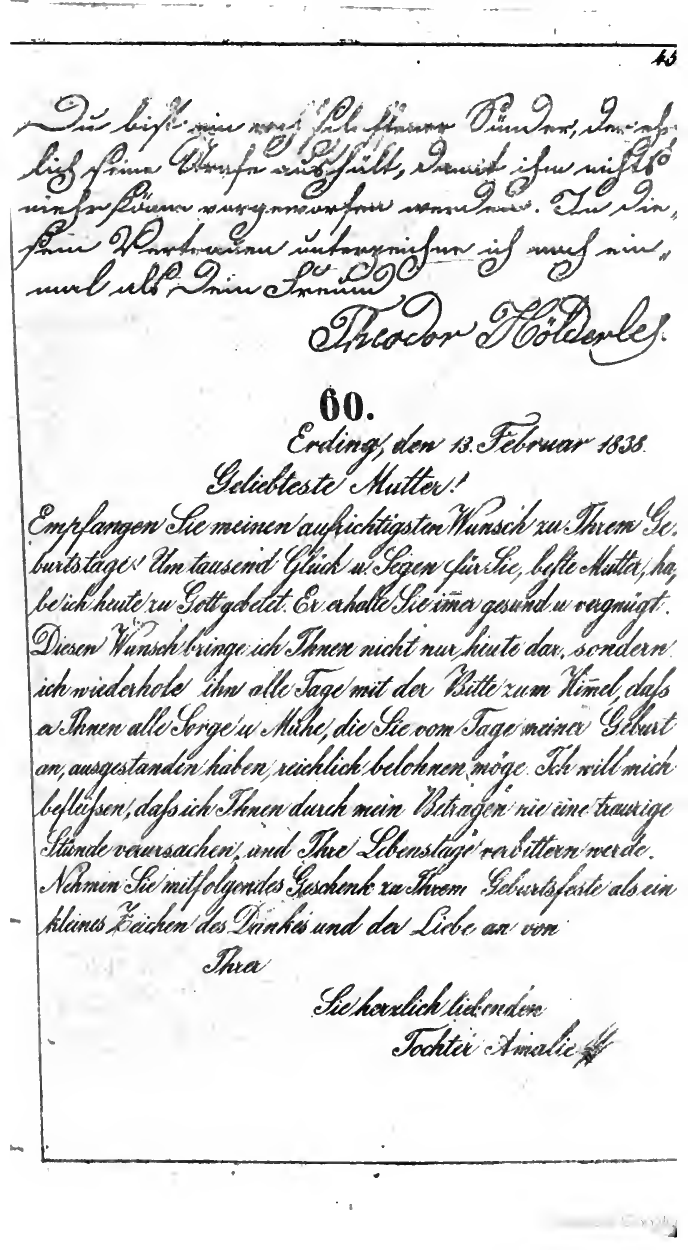 45
Du bist ein rechtschaffener Sünder, der ehr-
lich seine Strafe aushält, damit ihm nichts
mehr könne vorgeworfen werden. In die-
sem Vertrauen unterzeichne ich noch ein-
mal als Dein Freund
Theodor Hölderle.
60.
Erding, den 13. Februar 1838.
Geliebteste Mutter!
Empfangen Sie meinen aufrichtigsten Wunsch zu Ihrem Ge-
burtstage! Um tausend Glück u. Segen für Sie, beste Mutter, ha-
be ich heute zu Gott gebetet. Er erhalte Sie im̅er gesund u vergnügt.
Diesen Wunsch bringe ich Ihnen nicht nur heute dar, sondern
ich wiederhole ihn alle Tage mit der Bitte zum Him̅el, daſs
er Ihnen alle Sorge u Mühe, die Sie vom Tage meiner Geburt
an, ausgestanden haben, reichlich belohnen möge. Ich will mich
befleiſsen, daſs ich Ihnen durch mein Betragen nie eine traurige
Stunde verursachen, und Ihre Lebenstage verbittern werde.
Nehmen Sie mitfolgendes Geschenk zu Ihrem Geburtsfeste als ein
kleines Zeichen des Dankes und der Liebe an von
Ihrer
Sie herzlich liebenden
Tochter Amalie